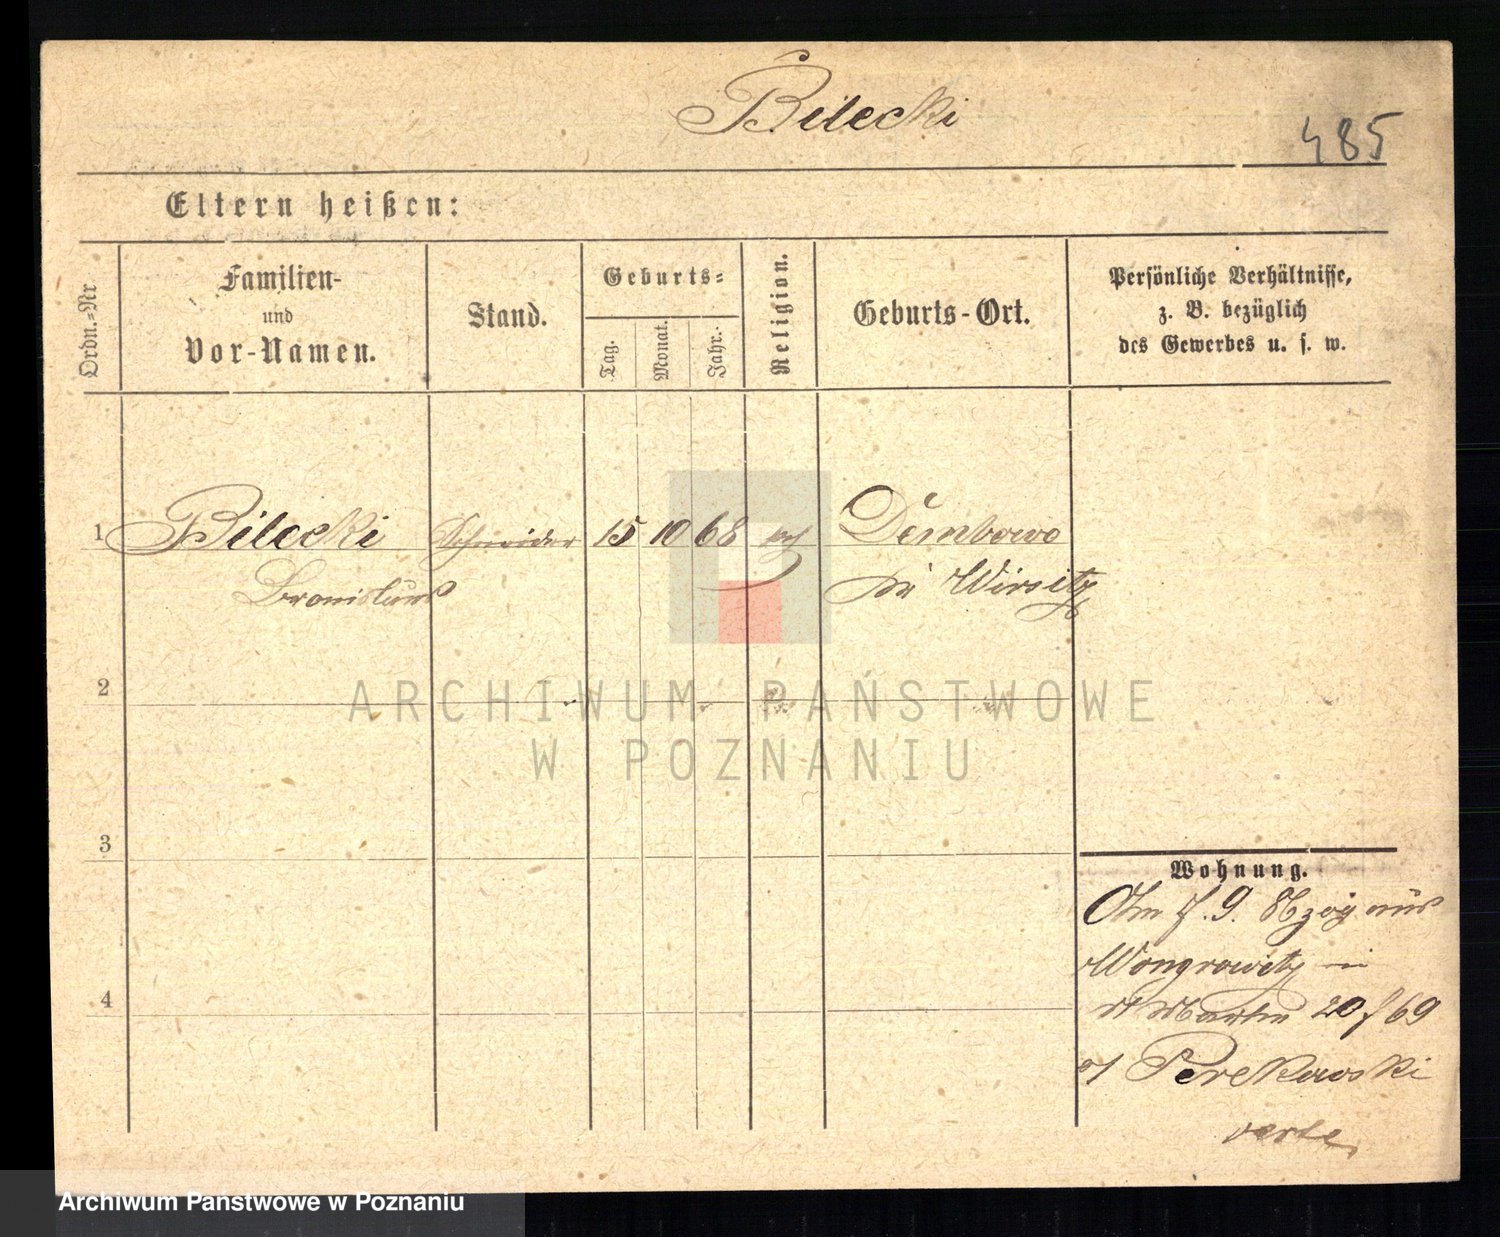 Bilecki
485
Eltern heißen:
Ordn.-Nr
Familien-
und
Vor-Namen.
Stand.
Geburts-
Tag.
Monat.
Jahr.
Religion.
Geburts-Ort.
Persönliche Verhältnisse,
z. B. bezüglich
des Gewerbes u. s. w.
1 Bilecki Schneider 15 10 68 kath Dembowo
Bronislaus Wirsitz
2
3
4
Wohnung.
Am 7. 9. zog aus
Wongrowitz in
St Martin 20/69
Perekowski
verte
ARCHIWUM PAŃSTWOWE
W POZNANIU
Archiwum Państwowe w Poznaniu